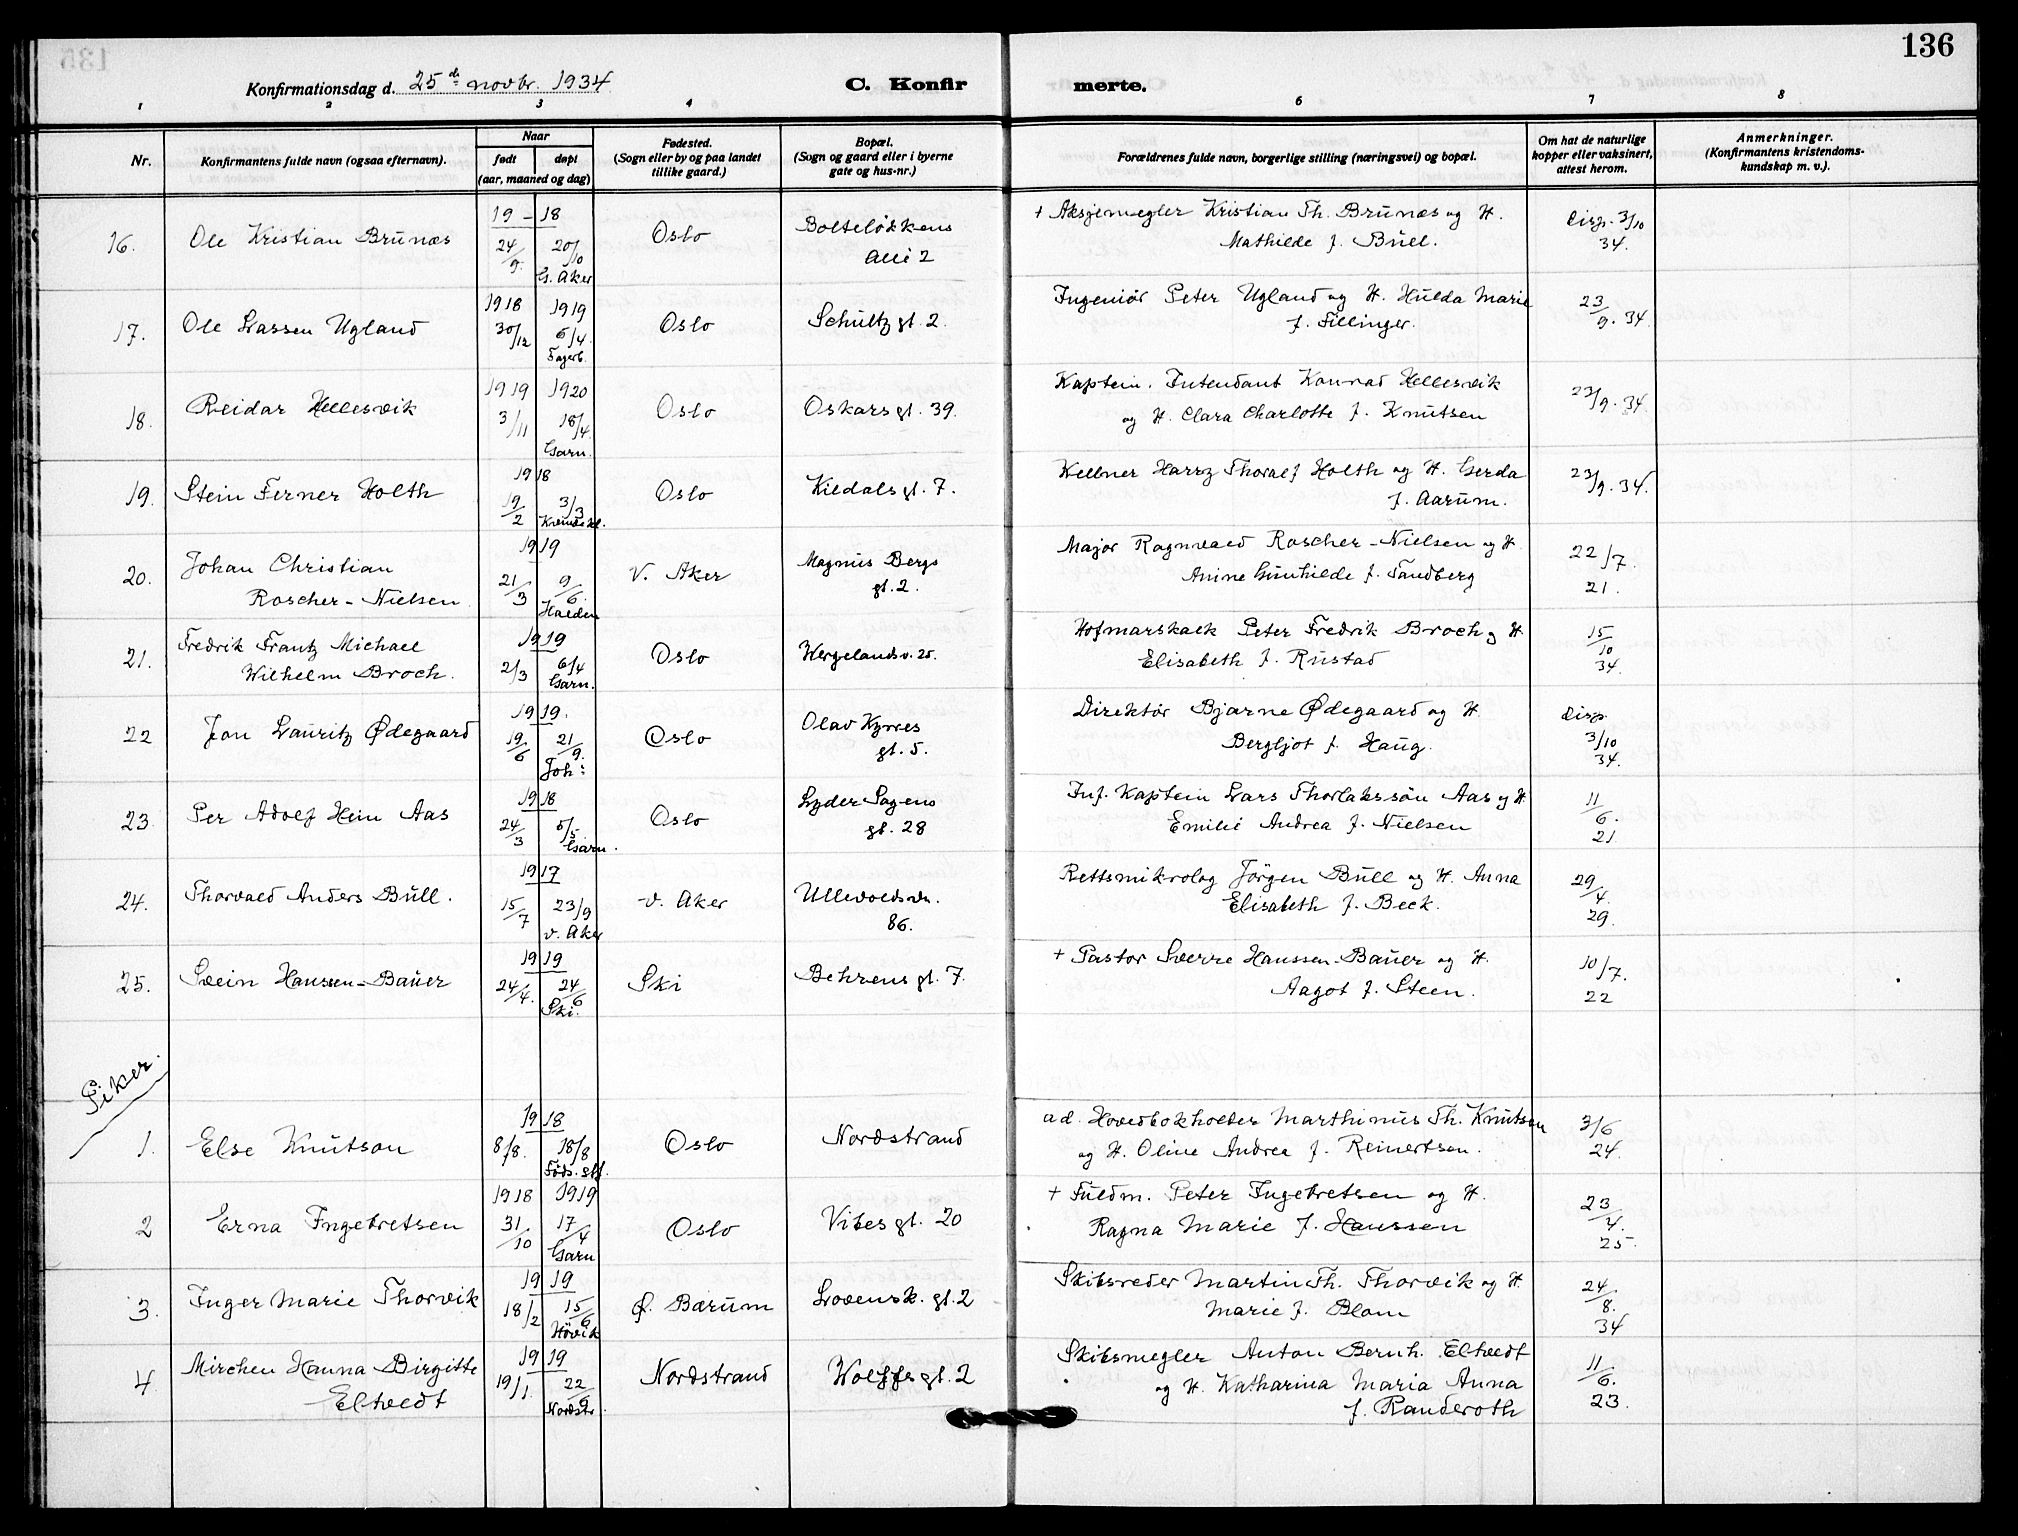 136
Konfirmationsdag d. 25de novbr. 1934. C. Konfirmerte.
1 2 3 4 6 7 8
Nr.
Konfirmantens fulde navn (ogsaa efternavn).
Naar
født døpt
(aar, maaned og dag)
Fødested.
(Sogn eller by og paa landet
tillike gaard.)
Bopæl.
(Sogn og gaard eller i byerne
gate og hus-nr.)
Forældrenes fulde navn, borgerlige stilling (næringsvei) og bopæl.
Om hat de naturlige
kopper eller vaksinert,
attest herom.
Anmerkninger.
(Konfirmantens kristendoms-
kundskap m. v.).
16. Ole Kristian Brunæs
19-18
24/9. 20/10
G. Aker
Oslo
Bolteløkkens
Allé 2
+ Aksjemegler Kristian Th. Brunæs og H.
Mathilde f. Bull.
Disp. 3/10
34.
17. Ole Lassen Ugland
1918 1919
30/12 6/4.
Fagerb.
Oslo
Schultz gt. 2.
Ingeniør Peter Ugland og H. Hulda Marie
f. Fillinger.
23/9. 34.
18. Reidar Hellesvik
1919 1920
3/11 18/4.
Garn.
Oslo
Oskars gt. 39.
Kaptein. Intendant Konrad Hellesvik
og H. Clara Charlotte f. Knutsen
23/9. 34.
19. Stein Ferner Holth
1918
19/2 3/3
Oslo
Kildals gt. 7.
Kellner Harry Thoralf Holth og H. Gerda
f. Aarum.
23/9. 34.
20. Johan Christian
Roscher-Nielsen
1919
21/3 9/6.
Halden
V. Aker
Magnus Bergs
gt. 2.
Major Ragnvald Roscher-Nielsen og H.
Anine Gunhilde f. Sandberg
22/7.
21.
21. Fredrik Frantz Michael
Wilhelm Broch.
1919
2/3 6/4
Garn.
Oslo
Wergelandsv. 25.
Hofmarskalk Peter Fredrik Broch og H
Elisabeth f. Rustad
15/10
34.
22 Jon Lauritz Ødegaard
1919.
19/6 21/9.
Joh:
Oslo
Olav Kyrres
gt. 5.
Direktør Bjarne Ødegaard og H.
Bergljot f. Haug.
Disp.
3/10
34.
23. Per Adolf Hein Aas
1918
24/3 5/5.
Garn.
Oslo
Lyder Sagens
gt. 28
Inf. Kaptein Lars Thorlakssøn Aas og H.
Emilie Andrea f. Nielsen
11/6.
21.
24. Thorvald Anders Bull.
1917
15/7 23/9
v. Aker
v. Aker
Ullevoldsvn.
86.
Rettsmikrolog Jörgen Bull og H. Anna
Elisabeth f. Beck.
29/4.
29.
25. Svein Hanssen-Bauer
1919
24/4. 24/6
Ski.
Ski
Behrens gt. 7.
+ Pastor Sverre Hanssen-Bauer og H.
Aagot f. Steen.
10/7.
22
Piker.
1. Else Knutson
1918
8/8. 18/8
Føds. stf.
Oslo
Nordstrand
ad. Hovedbokholder Marthinus Th. Knutson
og H. Oline Andrea f. Reinertsen.
3/6
24.
2 Erna Ingebretsen
1918 1919
31/10 17/4
Garn
Oslo
Vibes gt. 20
+ Fuldm. Peter Ingebretsen og H.
Ragna Marie f. Hanssen
23/4.
25.
3. Inger Marie Thorvik
1919
18/2 15/6
Høvik
Ø. Bærum
Lovensk. gt. 2
Skibsreder Martin Th. Thorvik og H
Marie f. Blom
24/8.
34
4. Mirchen Hanna Birgitte
Eltvedt
1919
19/1. 22/6
Nordstr.
Nordstrand
Wolffs gt. 2
Skibsmegler Anton Bernh. Eltvedt
og H. Katharina Maria Anna
f. Randeroth
11/6.
23.